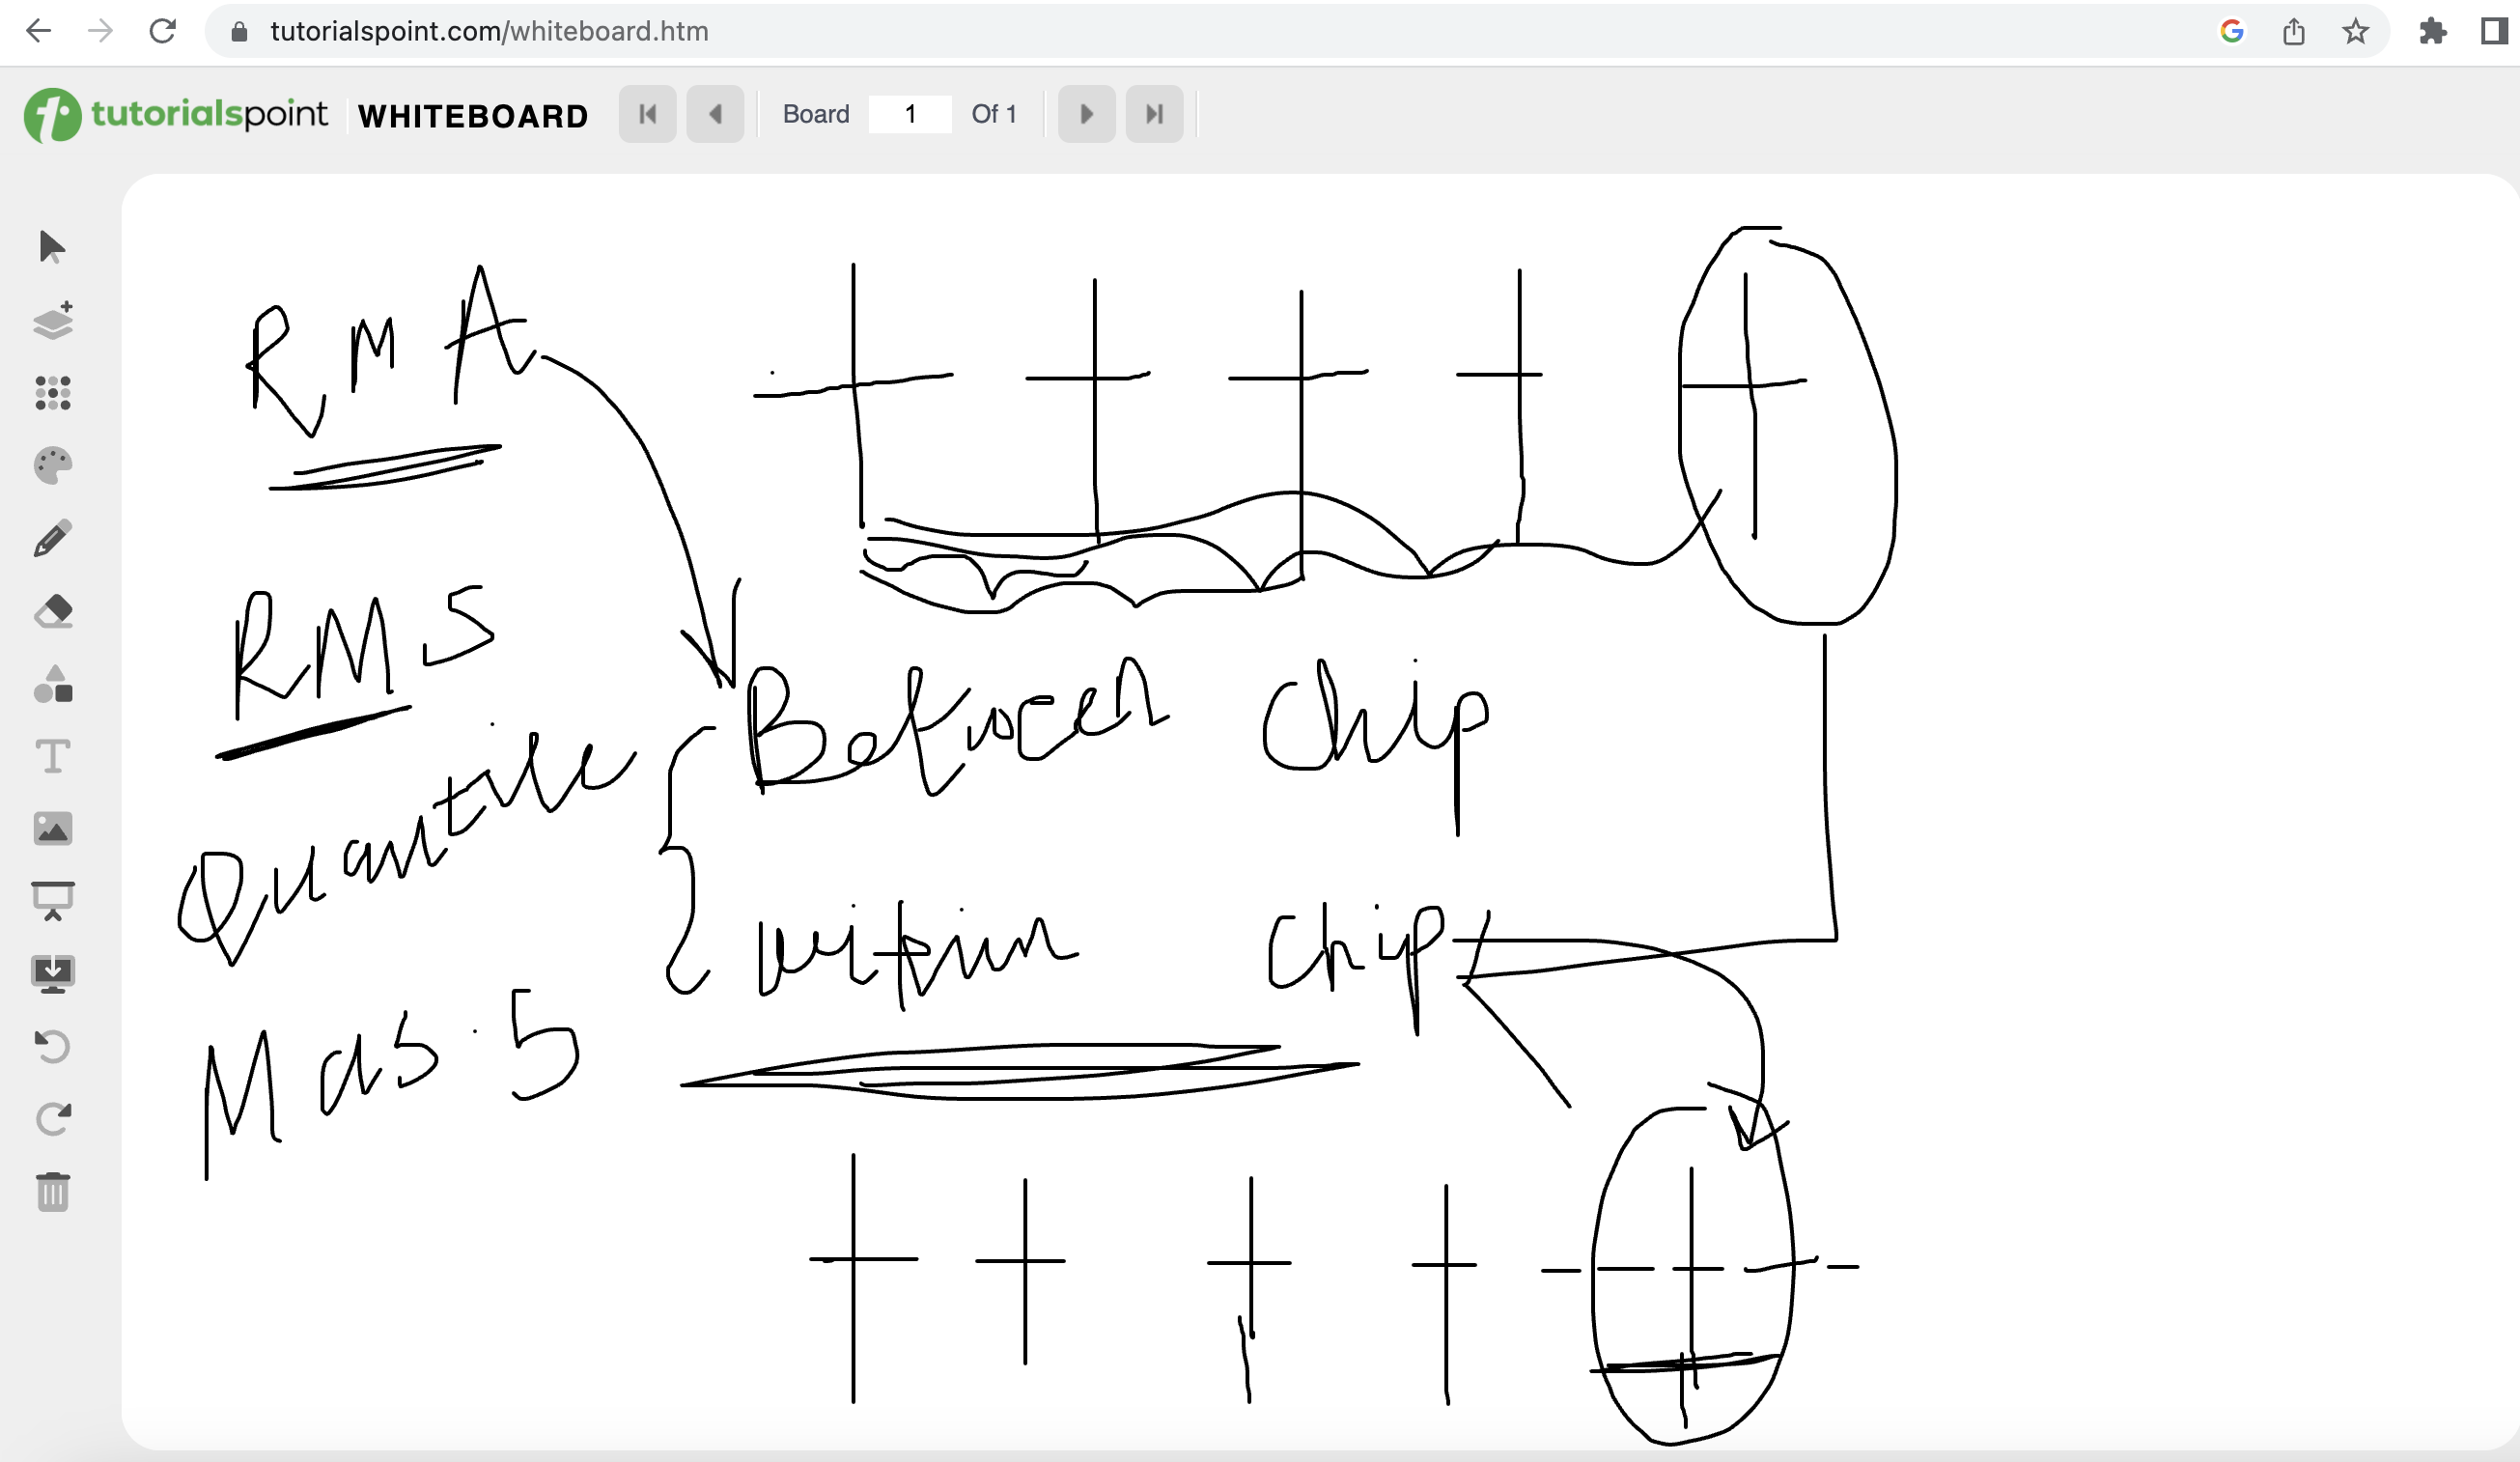 tutorialspoint.com/whiteboard.htm
tutorialspoint WHITEBOARD Board 1 Of 1
RMA
RMS
Quantile
Mas.5
Between Chip
within Chip